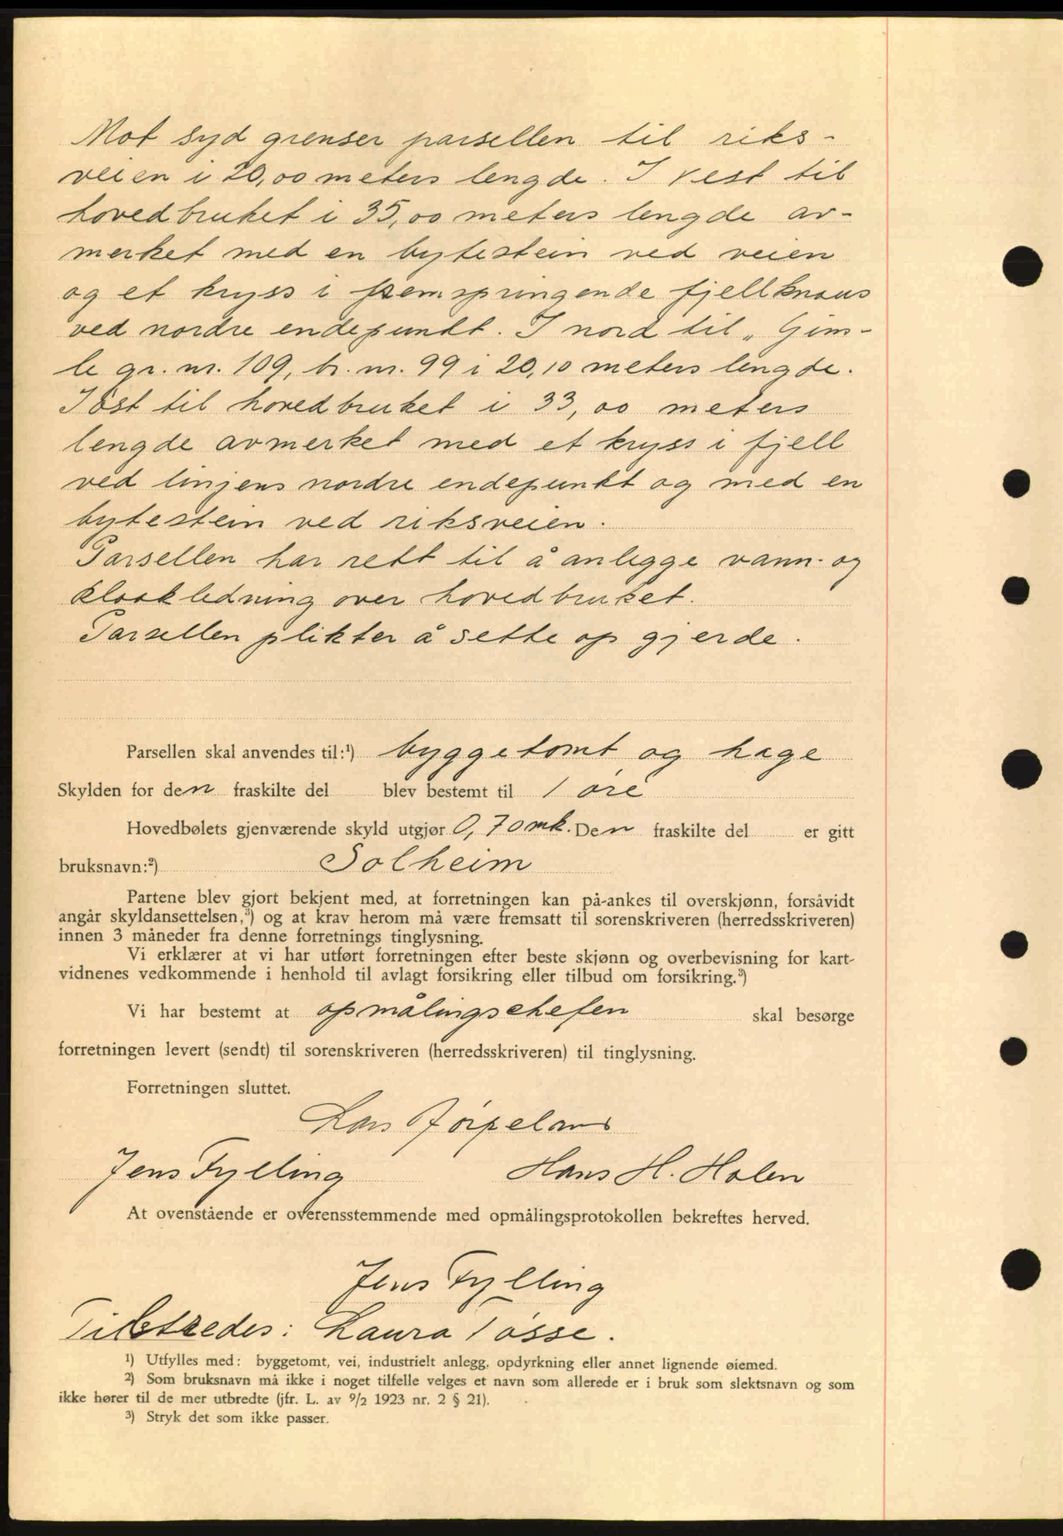 Mot syd grenser parsellen til riks-
veien i 20,00 meters lengde. I vest til
hovedbruket i 35,00 meters lengde av-
merket med en bytestein ved veien
og et kryss i fremspringende fjellknaus
ved nordre endepunkt. I nord til „Gim-
le gr. nr. 109, br. nr. 99 i 20,10 meters lengde.
I øst til hovedbruket i 33,00 meters
lengde avmerket med et kryss i fjell
ved linjens nordre endepunkt og med en
bytestein ved riksveien.
Parsellen har rett til å anlegge vann- og
kloakledning over hovedbruket.
Parsellen plikter å sette op gjerde.
Parsellen skal anvendes til:¹) byggetomt og hage
Skylden for den fraskilte del blev bestemt til 1 øre
Hovedbølets gjenværende skyld utgjør 0,70 mk. Den fraskilte del er gitt
bruksnavn:²) Solheim
Partene blev gjort bekjent med, at forretningen kan på-ankes til overskjønn, forsåvidt
angår skyldansettelsen,³) og at krav herom må være fremsatt til sorenskriveren (herredsskriveren)
innen 3 måneder fra denne forretnings tinglysning.
Vi erklærer at vi har utført forretningen efter beste skjønn og overbevisning for kart-
vidnenes vedkommende i henhold til avlagt forsikring eller tilbud om forsikring.³)
Vi har bestemt at opmålingschefen skal besørge
forretningen levert (sendt) til sorenskriveren (herredsskriveren) til tinglysning.
Forretningen sluttet.
Lars Jørpeland
Jens Fylling Hans H. Holen
At ovenstående er overensstemmende med opmålingsprotokollen bekreftes herved.
Jens Fylling
Tilstredes: Laura Tøsse.
¹) Utfylles med: byggetomt, vei, industrielt anlegg, opdyrkning eller annet lignende øiemed.
²) Som bruksnavn må ikke i noget tilfelle velges et navn som allerede er i bruk som slektsnavn og som
ikke hører til de mer utbredte (jfr. L. av 9/2 1923 nr. 2 § 21).
³) Stryk det som ikke passer.